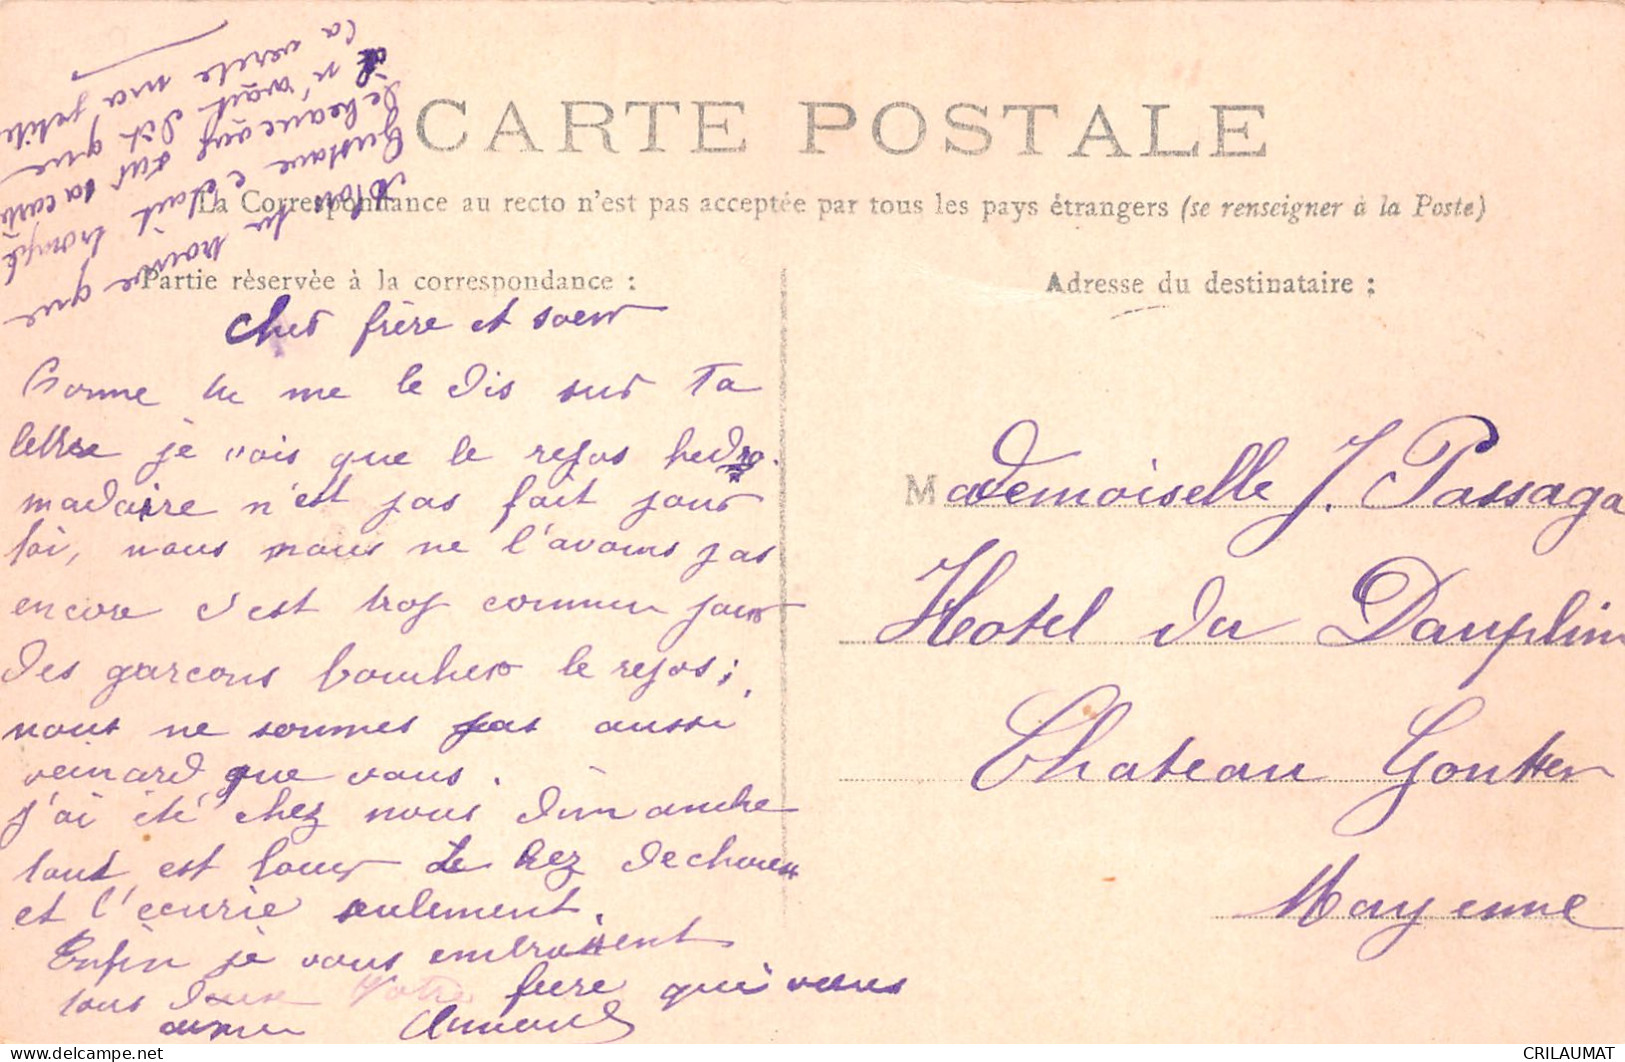 CARTE POSTALE
La Correspondance au recto n'est pas acceptée par tous les pays étrangers (se renseigner à la Poste)
Partie réservée à la correspondance :
Cher frère et soeur
Comme tu me le dis sur Ta
lettre je vois que le repos hedo
madaire n'est pas fait pour
toi, nous nous ne l'avons pas
encore c'est trop commun pour
des garcons boucher le repos ;
nous ne sommes pas aussi
veinard que vous.
j'ai été chez nous dimanche
tout est loué le rez dechaussée
et l'écurie seulement.
Enfin je vous embrassent
tous deux Votre frere qui vous
aime Armand
Mon tu trouve que
Gustave c'etait trompé
de beaucoup sur sa carte
il n'avait dit que
la verite ma petite
Adresse du destinataire :
Mademoiselle J. Passaga
Hotel du Dauphin
Chateau Gontier
Mayenne
CRILAUMAT